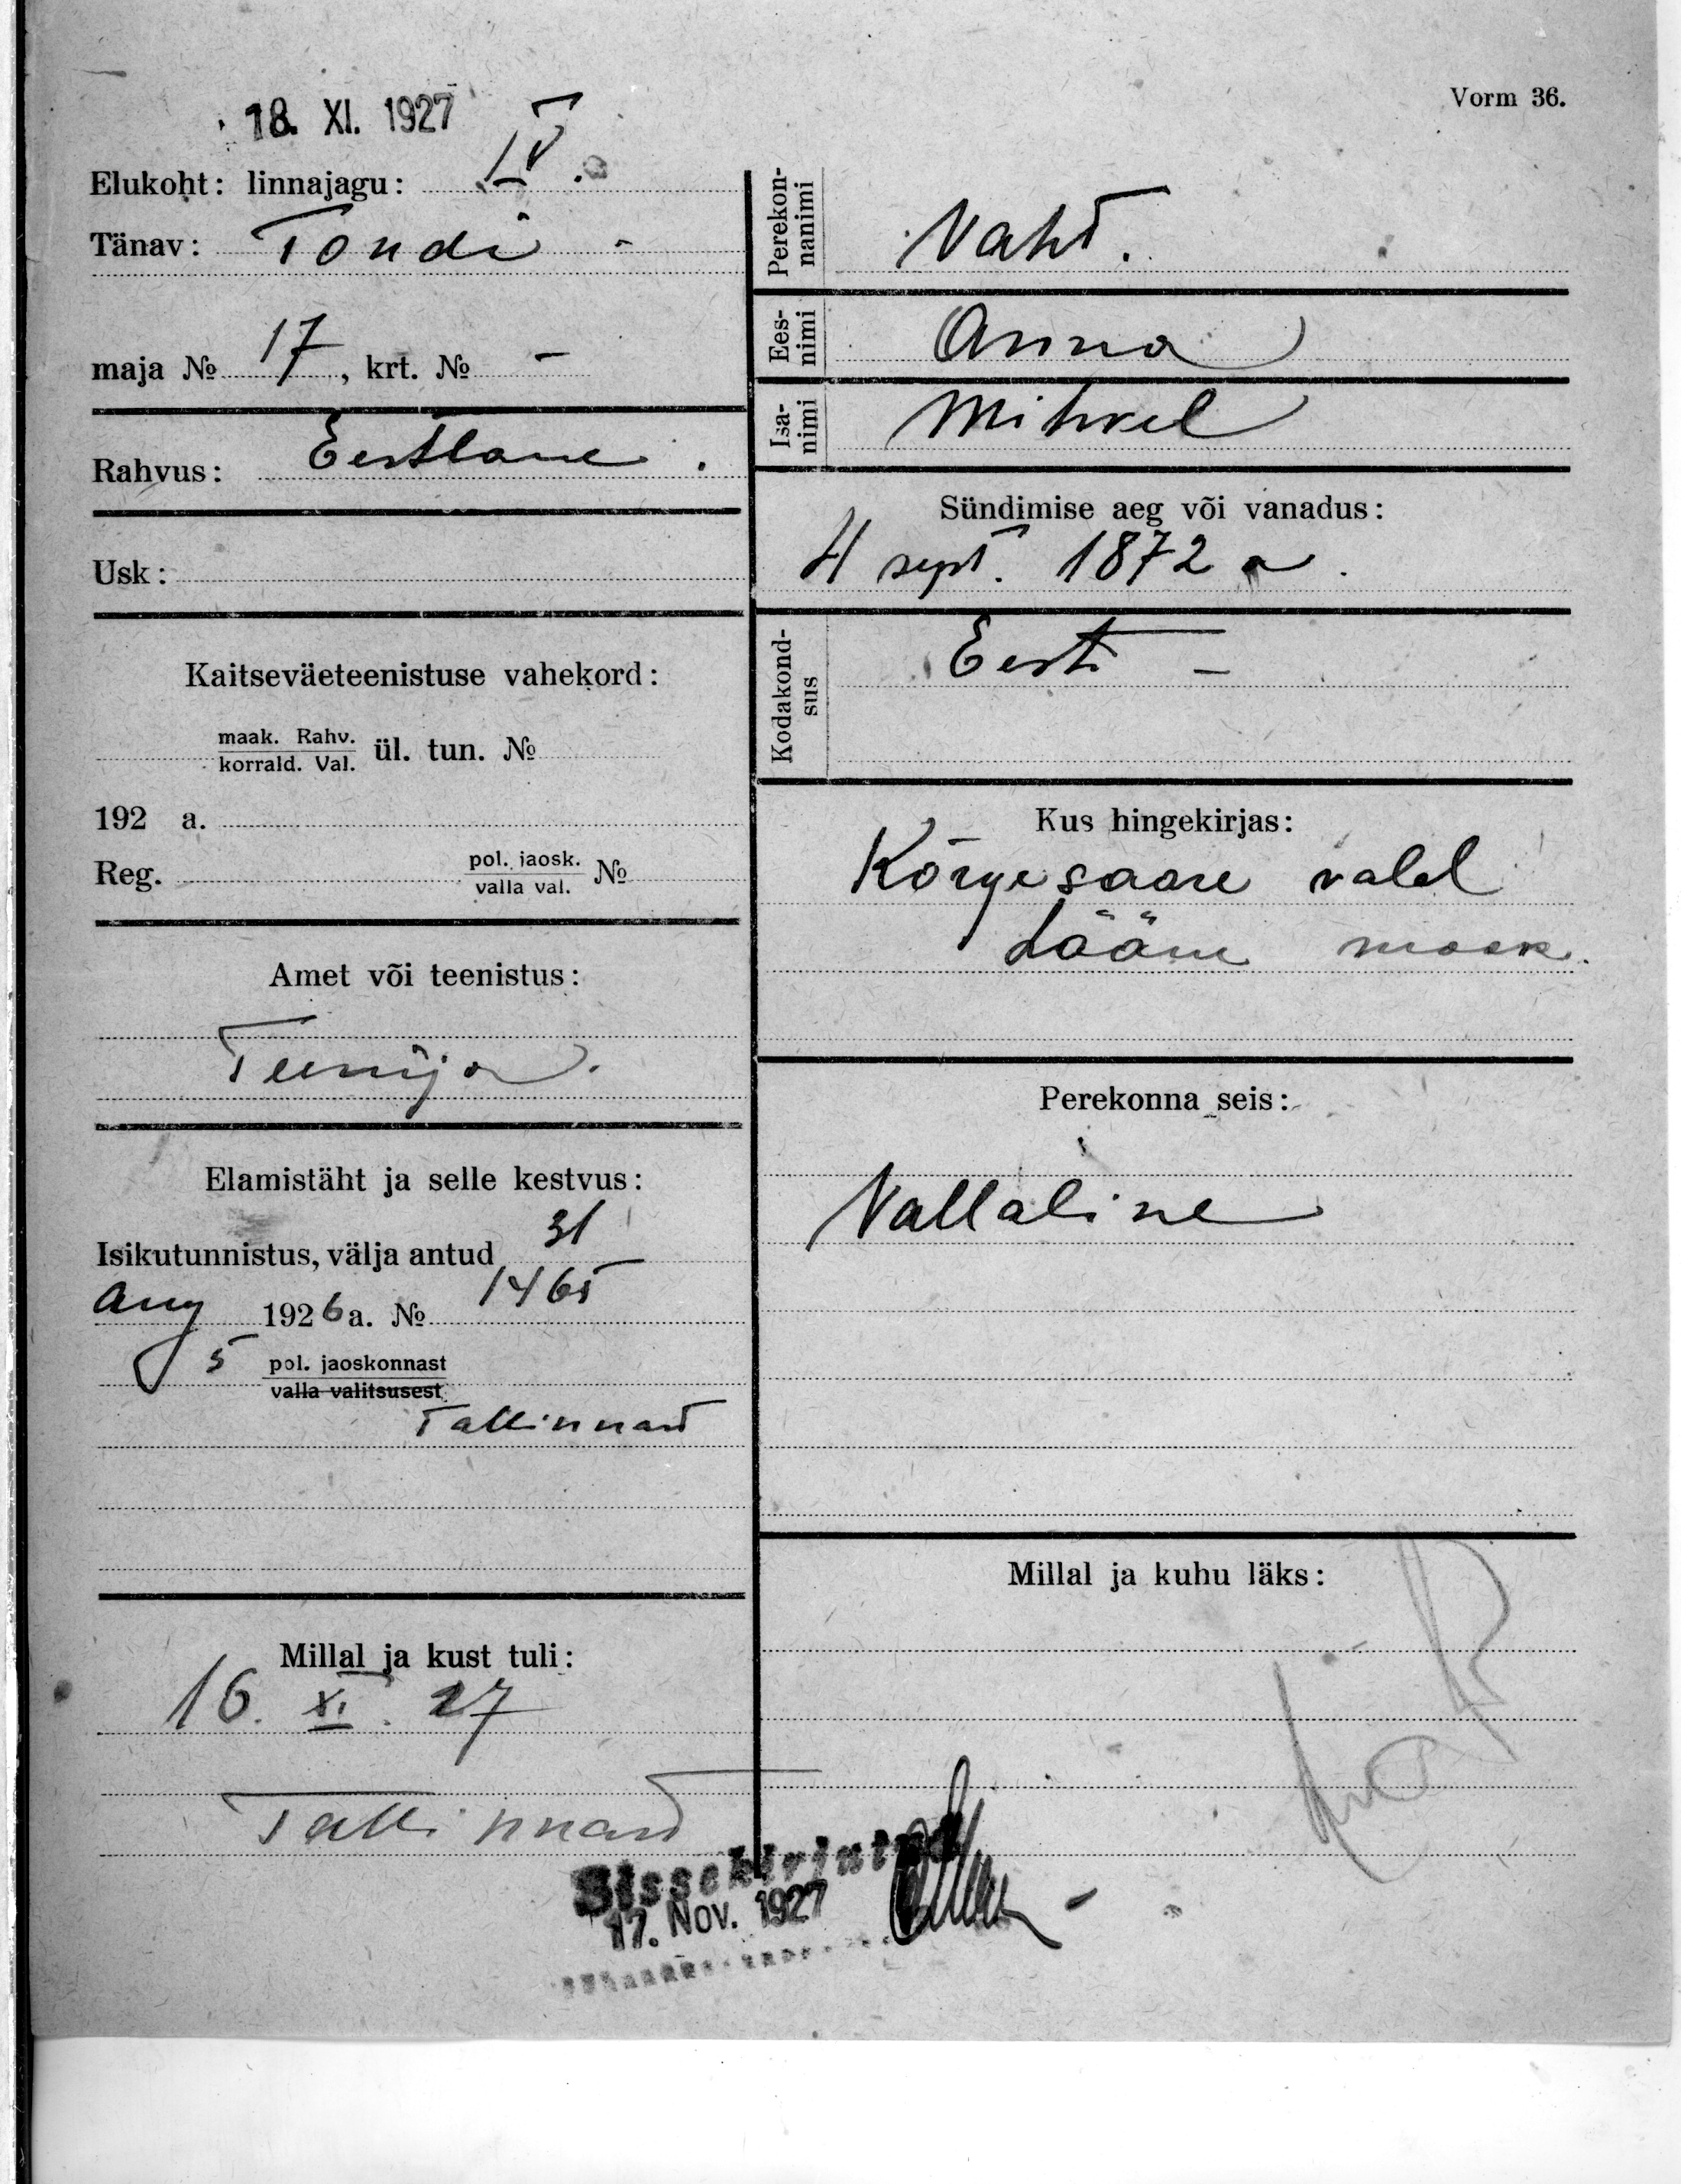 Vorm 36.
18. XI. 1927
Elukoht: linnajagu: IV.
Tänav: Tondi -
maja № 17, krt. № -
Rahvus: Eestlane.
Usk:
Kaitseväeteenistuse vahekord:
maak. Rahv.
korrald. Val. ül. tun. №
192 a.
Reg. pol. jaosk.
valla val. №
Amet või teenistus:
Teenija.
Elamistäht ja selle kestvus:
Isikutunnistus, välja antud 31
Aug 1926 a. № 1465
5 pol. jaoskonnast
valla valitsusest
Tallinnast
Millal ja kust tuli:
16. XI. 27
Tallinnast
Perekon-
nanimi
Vaht.
Ees-
nimi
Anna
Isa-
nimi
Mihkel
Sündimise aeg või vanadus:
4 sept. 1872 a.
Kodakond-
sus
Eesti -
Kus hingekirjas:
Kõrgesaare vald
Lääne maak.
Perekonna seis:
Vallaline
Millal ja kuhu läks:
Sissekirjutud
17. Nov. 1927